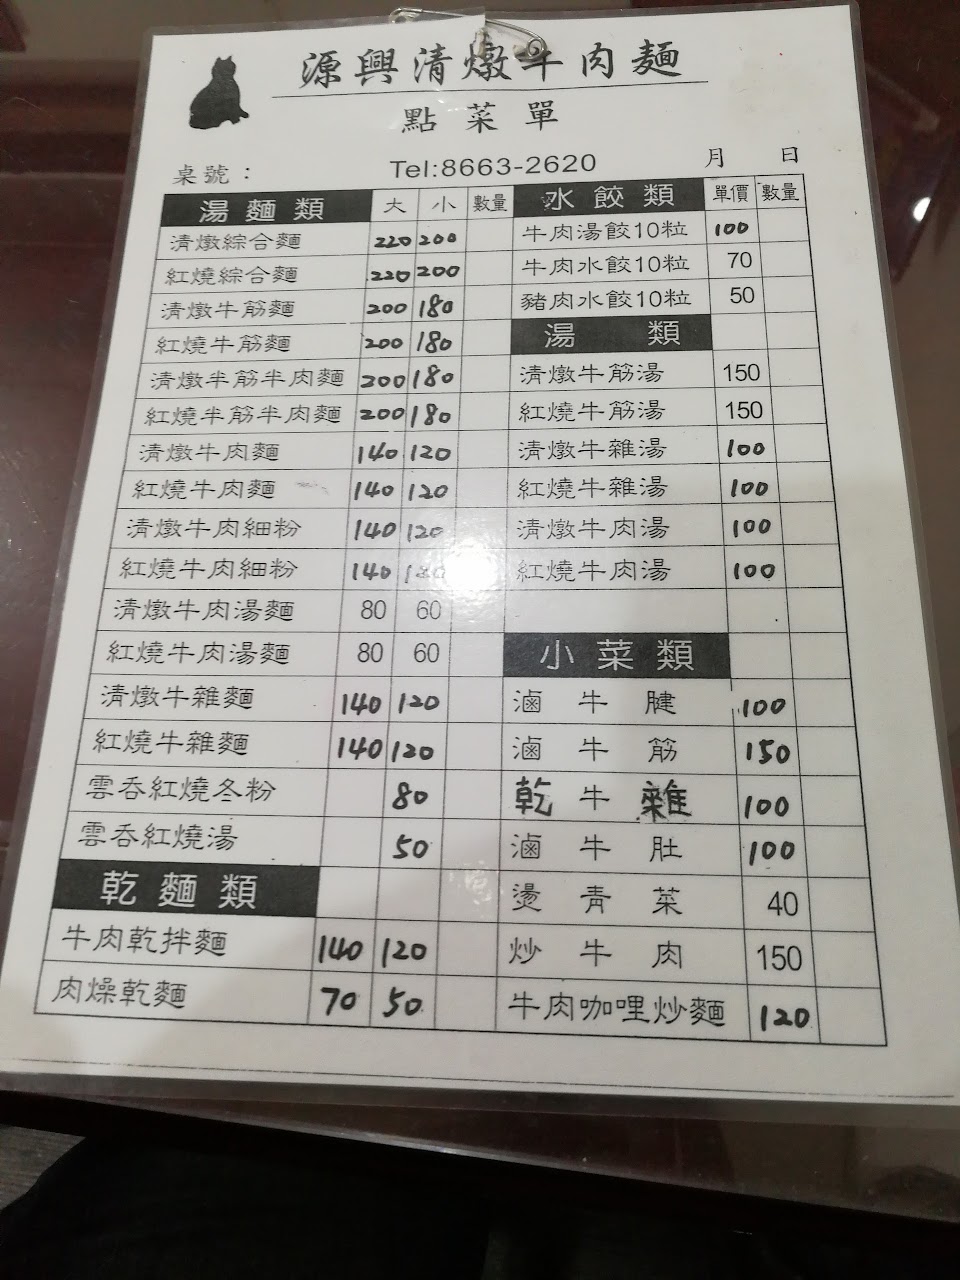 源興清燉牛肉麵
點菜單
桌號： Tel:8663-2620 月 日
湯麵類 大 小 數量
清燉綜合麵 220 200
紅燒綜合麵 220 200
清燉牛筋麵 200 180
紅燒牛筋麵 200 180
清燉半筋半肉麵 200 180
紅燒半筋半肉麵 200 180
清燉牛肉麵 140 120
紅燒牛肉麵 140 120
清燉牛肉細粉 140 120
紅燒牛肉細粉 140 120
清燉牛肉湯麵 80 60
紅燒牛肉湯麵 80 60
清燉牛雜麵 140 120
紅燒牛雜麵 140 120
雲吞紅燒冬粉 80
雲吞紅燒湯 50
乾麵類
牛肉乾拌麵 140 120
肉燥乾麵 70 50
水餃類 單價 數量
牛肉湯餃10粒 100
牛肉水餃10粒 70
豬肉水餃10粒 50
湯類
清燉牛筋湯 150
紅燒牛筋湯 150
清燉牛雜湯 100
紅燒牛雜湯 100
清燉牛肉湯 100
紅燒牛肉湯 100
小菜類
滷牛腱 100
滷牛筋 150
乾牛雜 100
滷牛肚 100
燙青菜 40
炒牛肉 150
牛肉咖哩炒麵 120